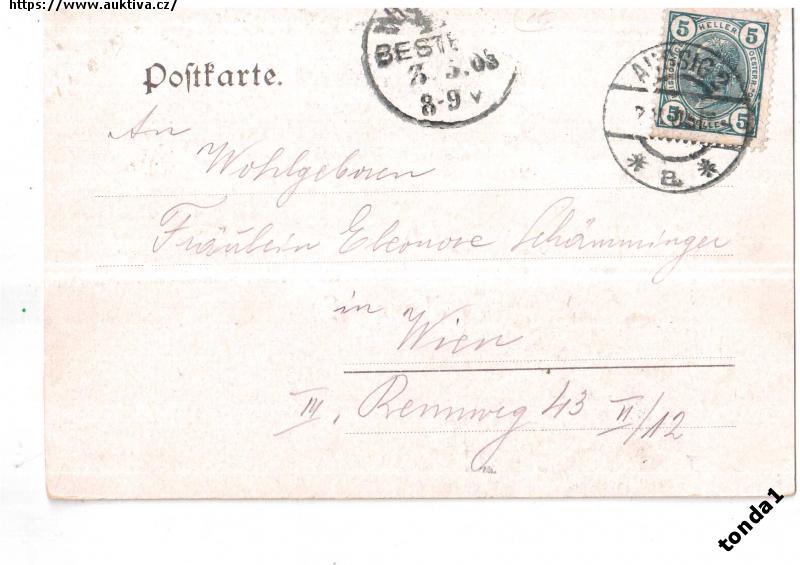 https://www.auktiva.cz/
5 HELLER 5
BESTE
3.5.08
8-9 V
AUSSIG 2
5 HELLER 5
* a. *
Postkarte.
An
Wohlgeboren
Fräulein Eleonore Schämminger
in
Wien
III, Rennweg 43 II/12
tonda1